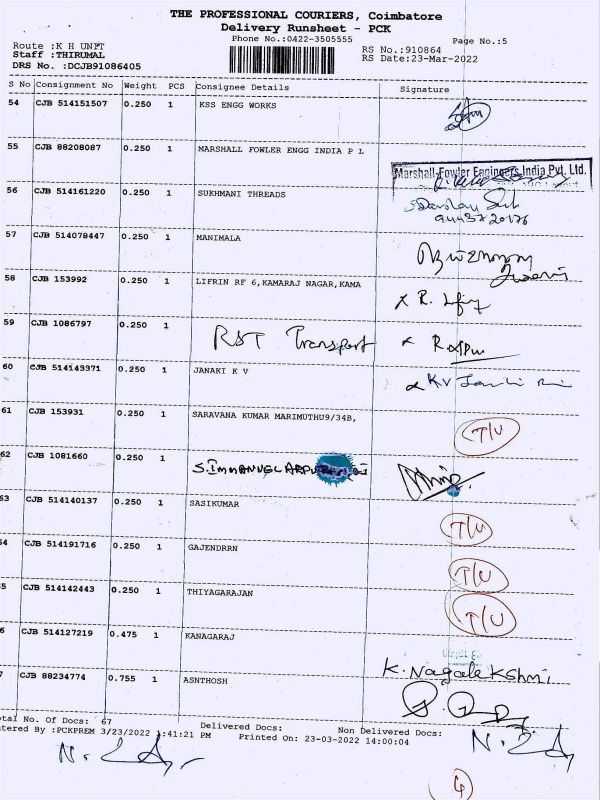 THE PROFESSIONAL COURIERS, Coimbatore
Delivery Runsheet - PCK
Phone No.:0422-3505555
Page No.:5
Route :K H UNIT
Staff :THIRUMAL
DRS No. :DCJB91086405
RS No.:910864
RS Date:23-Mar-2022
S No Consignment No Weight PCS Consignee Details Signature
54 CJB 514151507 0.250 1 KSS ENGG WORKS
55 CJB 88208087 0.250 1 MARSHALL FOWLER ENGG INDIA P L
Marshall Fowler Engineers India Pvt. Ltd.
56 CJB 514161220 0.250 1 SUKHMANI THREADS
57 CJB 514078447 0.250 1 MANIMALA
58 CJB 153992 0.250 1 LIFRIN RF 6,KAMARAJ NAGAR,KAMA
59 CJB 1086797 0.250 1 RST Transport
60 CJB 514143371 0.250 1 JANAKI K V
61 CJB 153931 0.250 1 SARAVANA KUMAR MARIMUTHU9/34B, T/U
62 CJB 1081660 0.250 1 S.IMMANUEL
63 CJB 514140137 0.250 1 SASIKUMAR T/U
54 CJB 514191716 0.250 1 GAJENDRRN T/U
5 CJB 514142443 0.250 1 THIYAGARAJAN T/U
6 CJB 514127219 0.475 1 KANAGARAJ K. Nagalekshmi
7 CJB 88234774 0.755 1 ASNTHOSH
otal No. Of Docs: 67 Delivered Docs: Non Delivered Docs:
tered By :PCKPREM 3/23/2022 1:41:21 PM Printed On: 23-03-2022 14:00:04
4